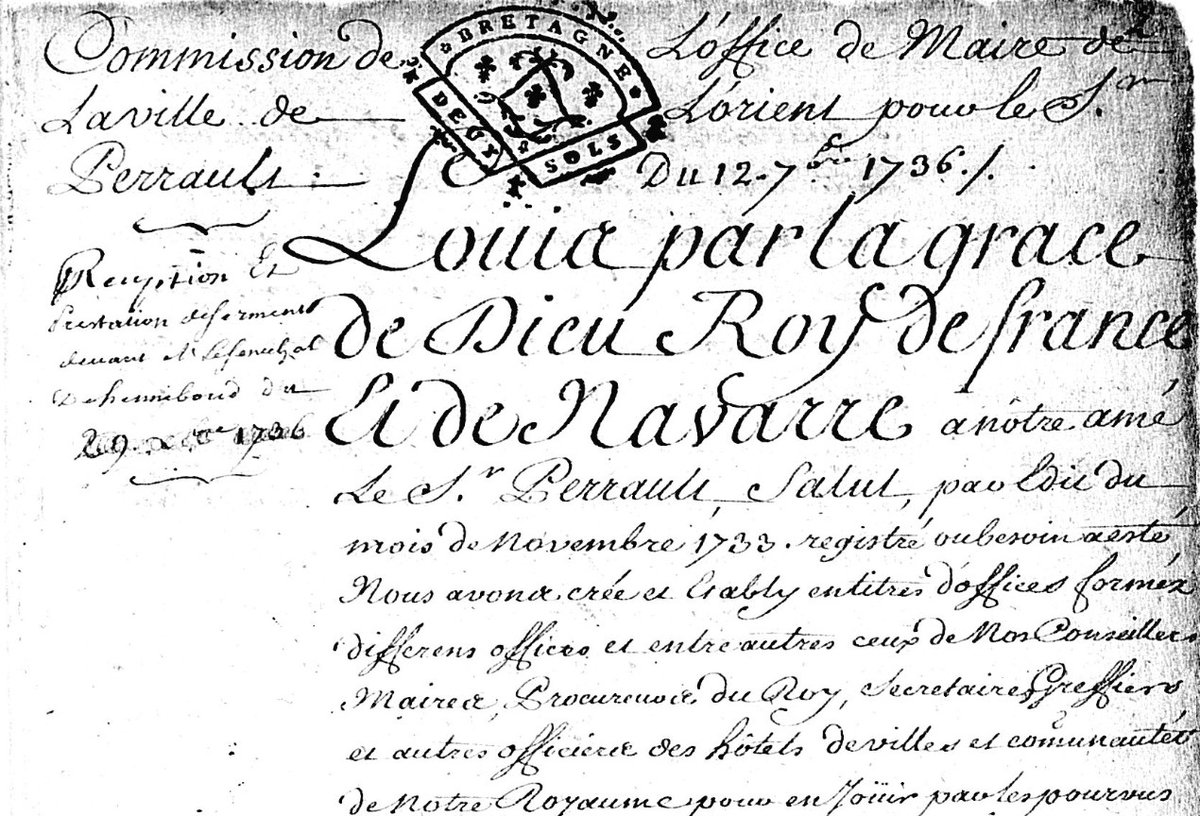 Commission de L'office de Maire de
Laville de L'orient pour le S.r
Perrault. Du 12. 7bre 1736./.
BRETAGNE
DEUX SOLS
Louis par la grace
de Dieu Roy de france
Et de Navarre a nôtre amé
Le S.r Perrault, Salut, par Edit du
mois de Novembre 1733. registré ou besoin a esté
Nous avons crée et Etably en titres d'offices forméz
differens offices et entre autres ceux de Nos Conseillers
Maires, Procureurs du Roy, Secretaires, Greffiers
et autres officiers des hôtels de villes et com̃unautéz
de Notre Royaume pour en Joüir par les pourvus
Reception Et
Prestation de serment
devant M. Le senechal
de hennebond du
29. 1736